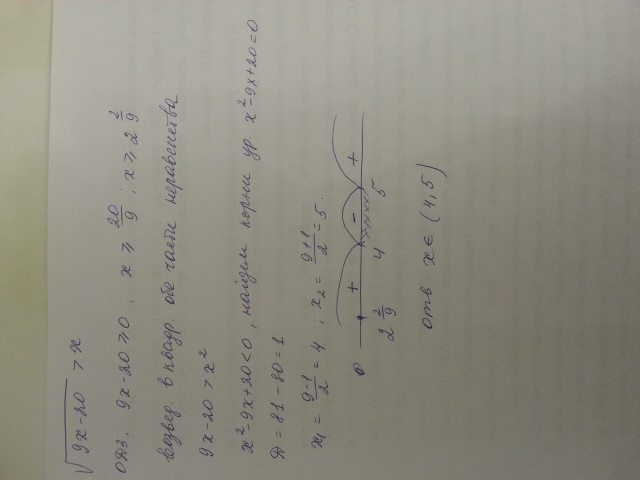 √9x-20 > x
ОДЗ. 9x-20≥0 ; x ≥ 20/9 ; x ≥ 2 2/9
возвед. в квадр. обе части неравенства
9x-20 > x²
x²-9x+20<0, найдем корни ур. x²-9x+20=0
D = 81-80=1
x₁ = 9-1/2 = 4 ; x₂ = 9+1/2 = 5.
+ - +
0 2 2/9 4 5
отв. x∈(4;5)